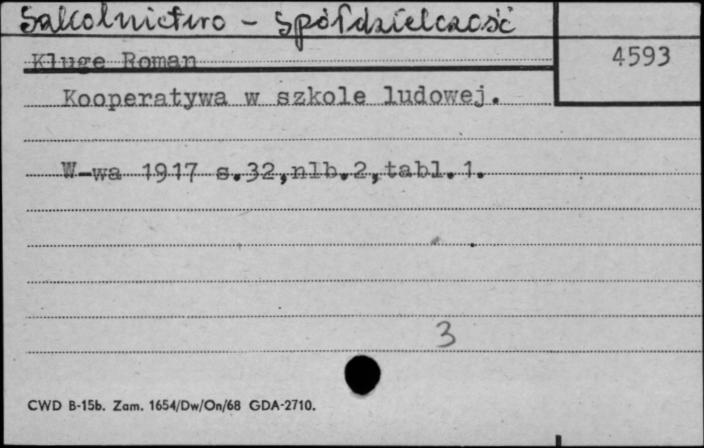 Szkolnictwo - Spółdzielczość
Kluge Roman
4593
Kooperatywa w szkole ludowej.
W-wa 1917 s.32,nlb.2,tabl.1.
3
CWD B-15b. Zam. 1654/Dw/On/68 GDA-2710.